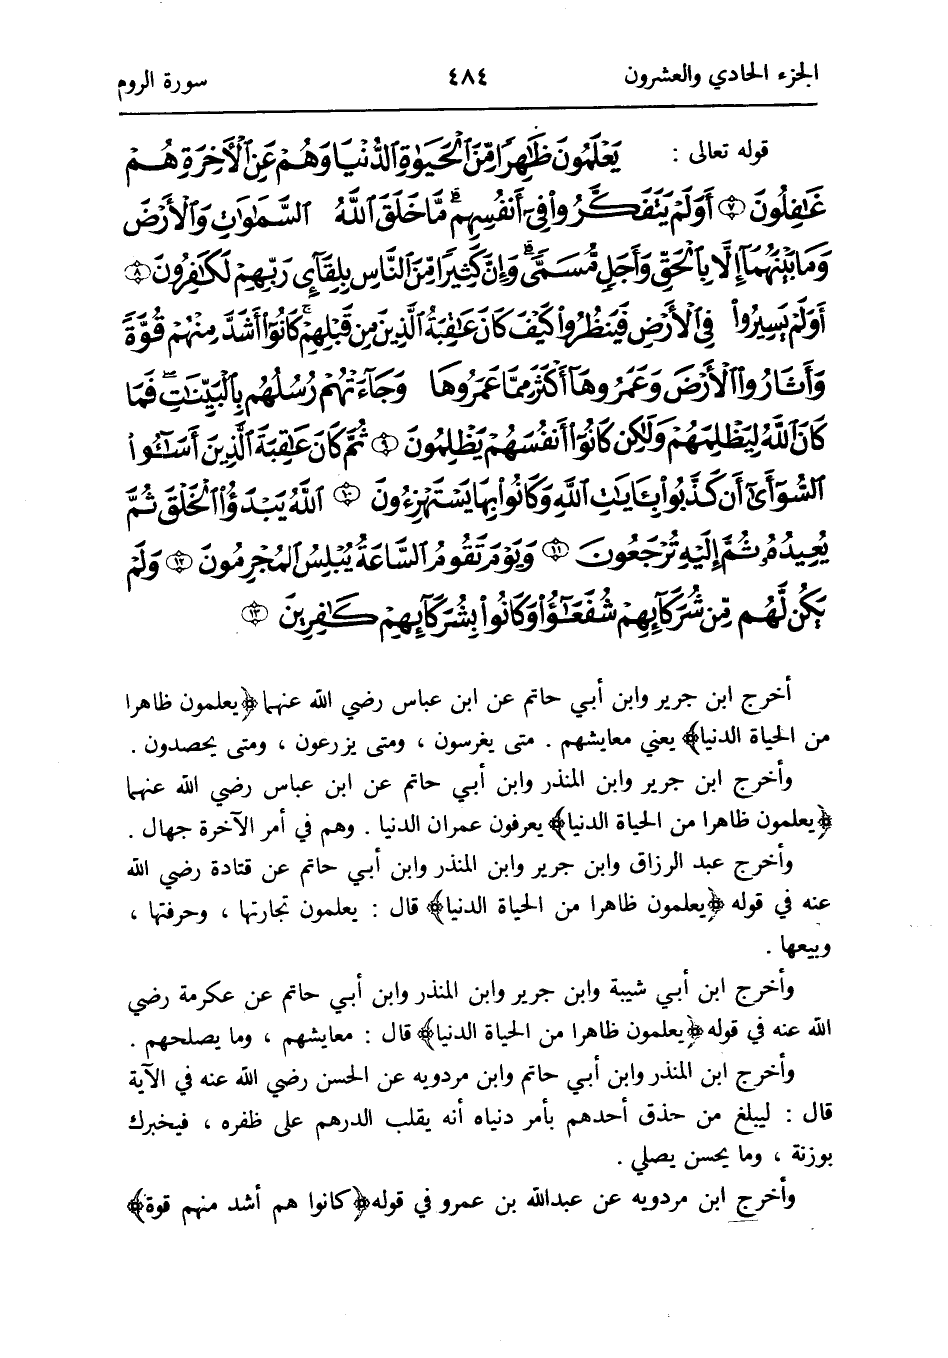 الجزء الحادي والعشرون ٤٨٤ سورة الروم
قوله تعالى : يَعْلَمُونَ ظَٰهِرًا مِّنَ ٱلْحَيَوٰةِ ٱلدُّنْيَا وَهُمْ عَنِ ٱلْأَخِرَةِ هُمْ
غَٰفِلُونَ ۝٧ أَوَلَمْ يَتَفَكَّرُوا۟ فِىٓ أَنفُسِهِم ۗ مَّا خَلَقَ ٱللَّهُ ٱلسَّمَٰوَٰتِ وَٱلْأَرْضَ
وَمَا بَيْنَهُمَآ إِلَّا بِٱلْحَقِّ وَأَجَلٍ مُّسَمًّى ۗ وَإِنَّ كَثِيرًا مِّنَ ٱلنَّاسِ بِلِقَآئِ رَبِّهِمْ لَكَٰفِرُونَ ۝٨
أَوَلَمْ يَسِيرُوا۟ فِى ٱلْأَرْضِ فَيَنظُرُوا۟ كَيْفَ كَانَ عَٰقِبَةُ ٱلَّذِينَ مِن قَبْلِهِمْ ۚ كَانُوٓا۟ أَشَدَّ مِنْهُمْ قُوَّةً
وَأَثَارُوا۟ ٱلْأَرْضَ وَعَمَرُوهَآ أَكْثَرَ مِمَّا عَمَرُوهَا وَجَآءَتْهُمْ رُسُلُهُم بِٱلْبَيِّنَٰتِ ۖ فَمَا
كَانَ ٱللَّهُ لِيَظْلِمَهُمْ وَلَٰكِن كَانُوٓا۟ أَنفُسَهُمْ يَظْلِمُونَ ۝٩ ثُمَّ كَانَ عَٰقِبَةَ ٱلَّذِينَ أَسَٰٓـُٔوا۟
ٱلسُّوٓأَىٰٓ أَن كَذَّبُوا۟ بِـَٔايَٰتِ ٱللَّهِ وَكَانُوا۟ بِهَا يَسْتَهْزِءُونَ ۝١٠ ٱللَّهُ يَبْدَؤُا۟ ٱلْخَلْقَ ثُمَّ
يُعِيدُهُۥ ثُمَّ إِلَيْهِ تُرْجَعُونَ ۝١١ وَيَوْمَ تَقُومُ ٱلسَّاعَةُ يُبْلِسُ ٱلْمُجْرِمُونَ ۝١٢ وَلَمْ
يَكُن لَّهُم مِّن شُرَكَآئِهِمْ شُفَعَٰٓؤُا۟ وَكَانُوا۟ بِشُرَكَآئِهِمْ كَٰفِرِينَ ۝١٣
أخرج ابن جرير وابن أبي حاتم عن ابن عباس رضي الله عنهما ﴿يعلمون ظاهرا
من الحياة الدنيا﴾ يعني معايشهم . متى يغرسون ، ومتى يزرعون ، ومتى يحصدون .
وأخرج ابن جرير وابن المنذر وابن أبي حاتم عن ابن عباس رضي الله عنهما
﴿يعلمون ظاهرا من الحياة الدنيا﴾ يعرفون عمران الدنيا . وهم في أمر الآخرة جهال .
وأخرج عبد الرزاق وابن جرير وابن المنذر وابن أبي حاتم عن قتادة رضي الله
عنه في قوله ﴿يعلمون ظاهرا من الحياة الدنيا﴾ قال : يعلمون تجارتها ، وحرفتها ،
وبيعها .
وأخرج ابن أبي شيبة وابن جرير وابن المنذر وابن أبي حاتم عن عكرمة رضي
الله عنه في قوله ﴿يعلمون ظاهرا من الحياة الدنيا﴾ قال : معايشهم ، وما يصلحهم .
وأخرج ابن المنذر وابن أبي حاتم وابن مردويه عن الحسن رضي الله عنه في الآية
قال : ليبلغ من حذق أحدهم بأمر دنياه أنه يقلب الدرهم على ظفره ، فيخبرك
بوزنة ، وما يحسن يصلي .
وأخرج ابن مردويه عن عبدالله بن عمرو في قوله ﴿كانوا هم أشد منهم قوة﴾